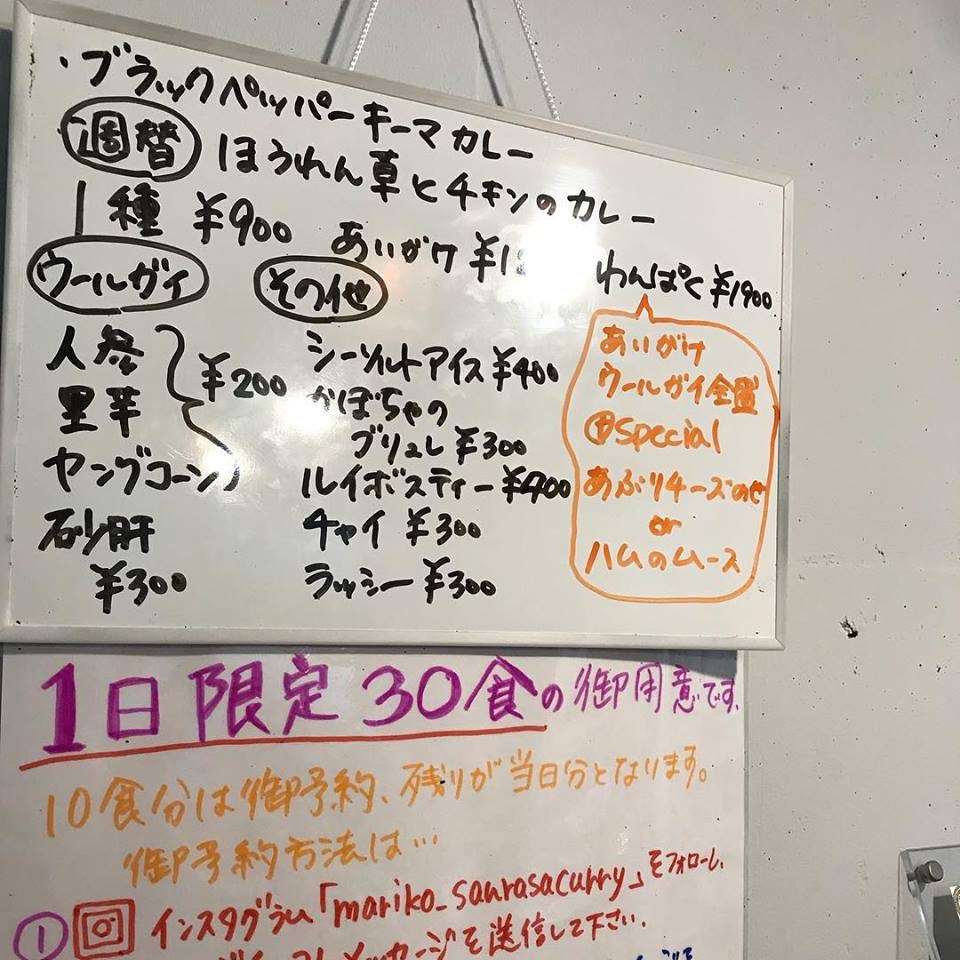 ・ブラックペッパーキーマカレー
週替 ほうれん草とチキンのカレー
1種 ¥900 あいがけ ¥1 わんぱく ¥1900
ウールガイ
人参
里芋
¥200
ヤングコーン
砂肝
¥300
その他
シーソルトアイス ¥400
かぼちゃの
ブリュレ ¥300
ルイボスティー ¥400
チャイ ¥300
ラッシー ¥300
あいがけ
ウールガイ全置
Ⓟspecial
あぶりチーズのせ
or
ハムのムース
1日限定30食の御用意です.
10食分は御予約、残りが当日分となります。
御予約方法は…
① インスタグラム「mariko_saurasacurry」をフォローし、
メッセージを送信して下さい.